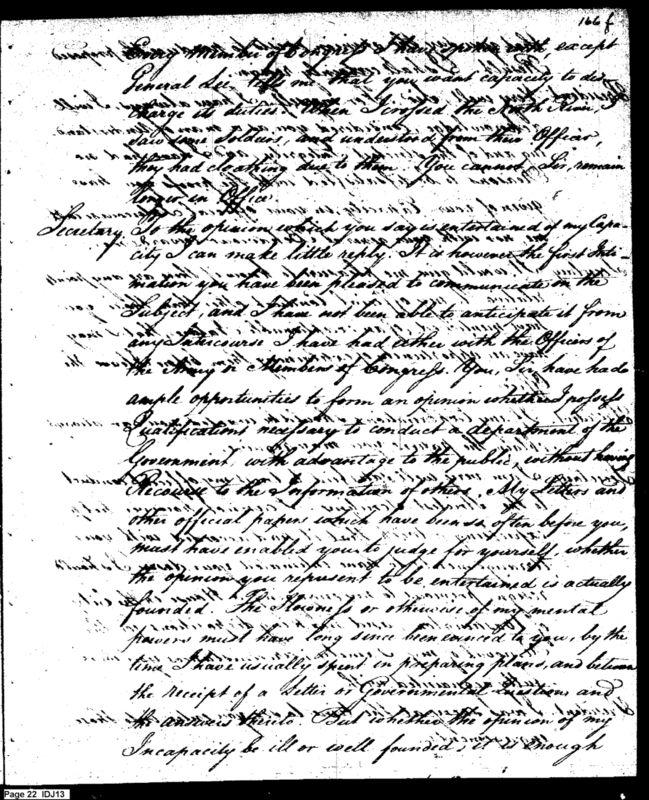 166 f
Every Member of Congress I have spoken with except
General Lee, tell me that you want capacity to dis-
charge its duties. When I crossed the North River, I
saw some Soldiers, and understood from their Officer,
they had cloathing due to them. You cannot, Sir, remain
longer in Office.
Secretary. To the opinion which you say is entertained of my Capa-
city I can make little reply. It is however the first Inti-
mation you have been pleased to communicate on the
Subject, and I have not been able to anticipate it from
any Intercourse I have had either with the Officers of
the Army or Members of Congress. You, Sir, have had
ample opportunities to form an opinion whether I possess
Qualifications necessary to conduct a department of the
Government, with advantage to the public, without having
Recourse to the Information of others. My Letters and
other official papers which have been so often before you,
must have enabled you to judge for yourself, whether
the opinion you represent to be entertained is actually
founded. The Slowness or otherwise of my mental
powers must have long since been evinced to you, by the
time I have usually spent in preparing plans, and between
the receipt of a Letter or Governmental questions and
the answers thereto. But whether the opinion of my
Incapacity be ill or well founded, it is enough
Page 22 IDJ13